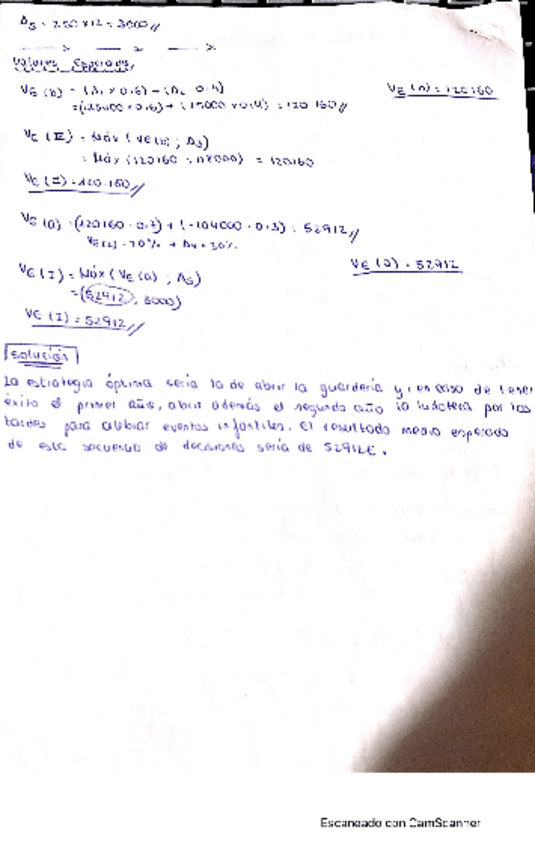 A5 = 250 x 12 = 3000 //
Valores Esperados,
VE (b) = (A1 x 0.6) + (A2 0.4)
VE (b) = 120160
+ ( 0.4) = 120.160 //
VE (II) = Máx (VE(b) ; A3)
= Máx (120160 ; ) = 120160
VE (II) = 120.160 //
VE (a) = (120160 · 0.7) + (-104000 · 0.3) = 52912 //
70% + A4 = 30%
VE (a) = 52912
VE (I) = Máx (VE (a) ; A5)
= (52912, 3000)
VE (I) = 52912 //
Solución
La estrategia óptima sería la de abrir la guardería y, en caso de tener
éxito el primer año, abrir además el segundo año la ludoteca por las
tardes para celebrar eventos infantiles. El resultado medio esperado
de esta secuencia de decisiones sería de 52912€.
Escaneado con CamScanner